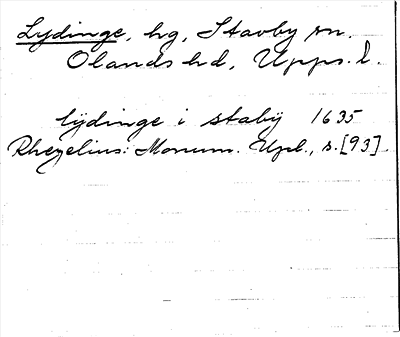 Lydinge, hg, Stavby sn.
Olands hd, Upps. l.
lÿdinge i stabÿ 1635
Rhezelius: Monum. Upl., s. [93].